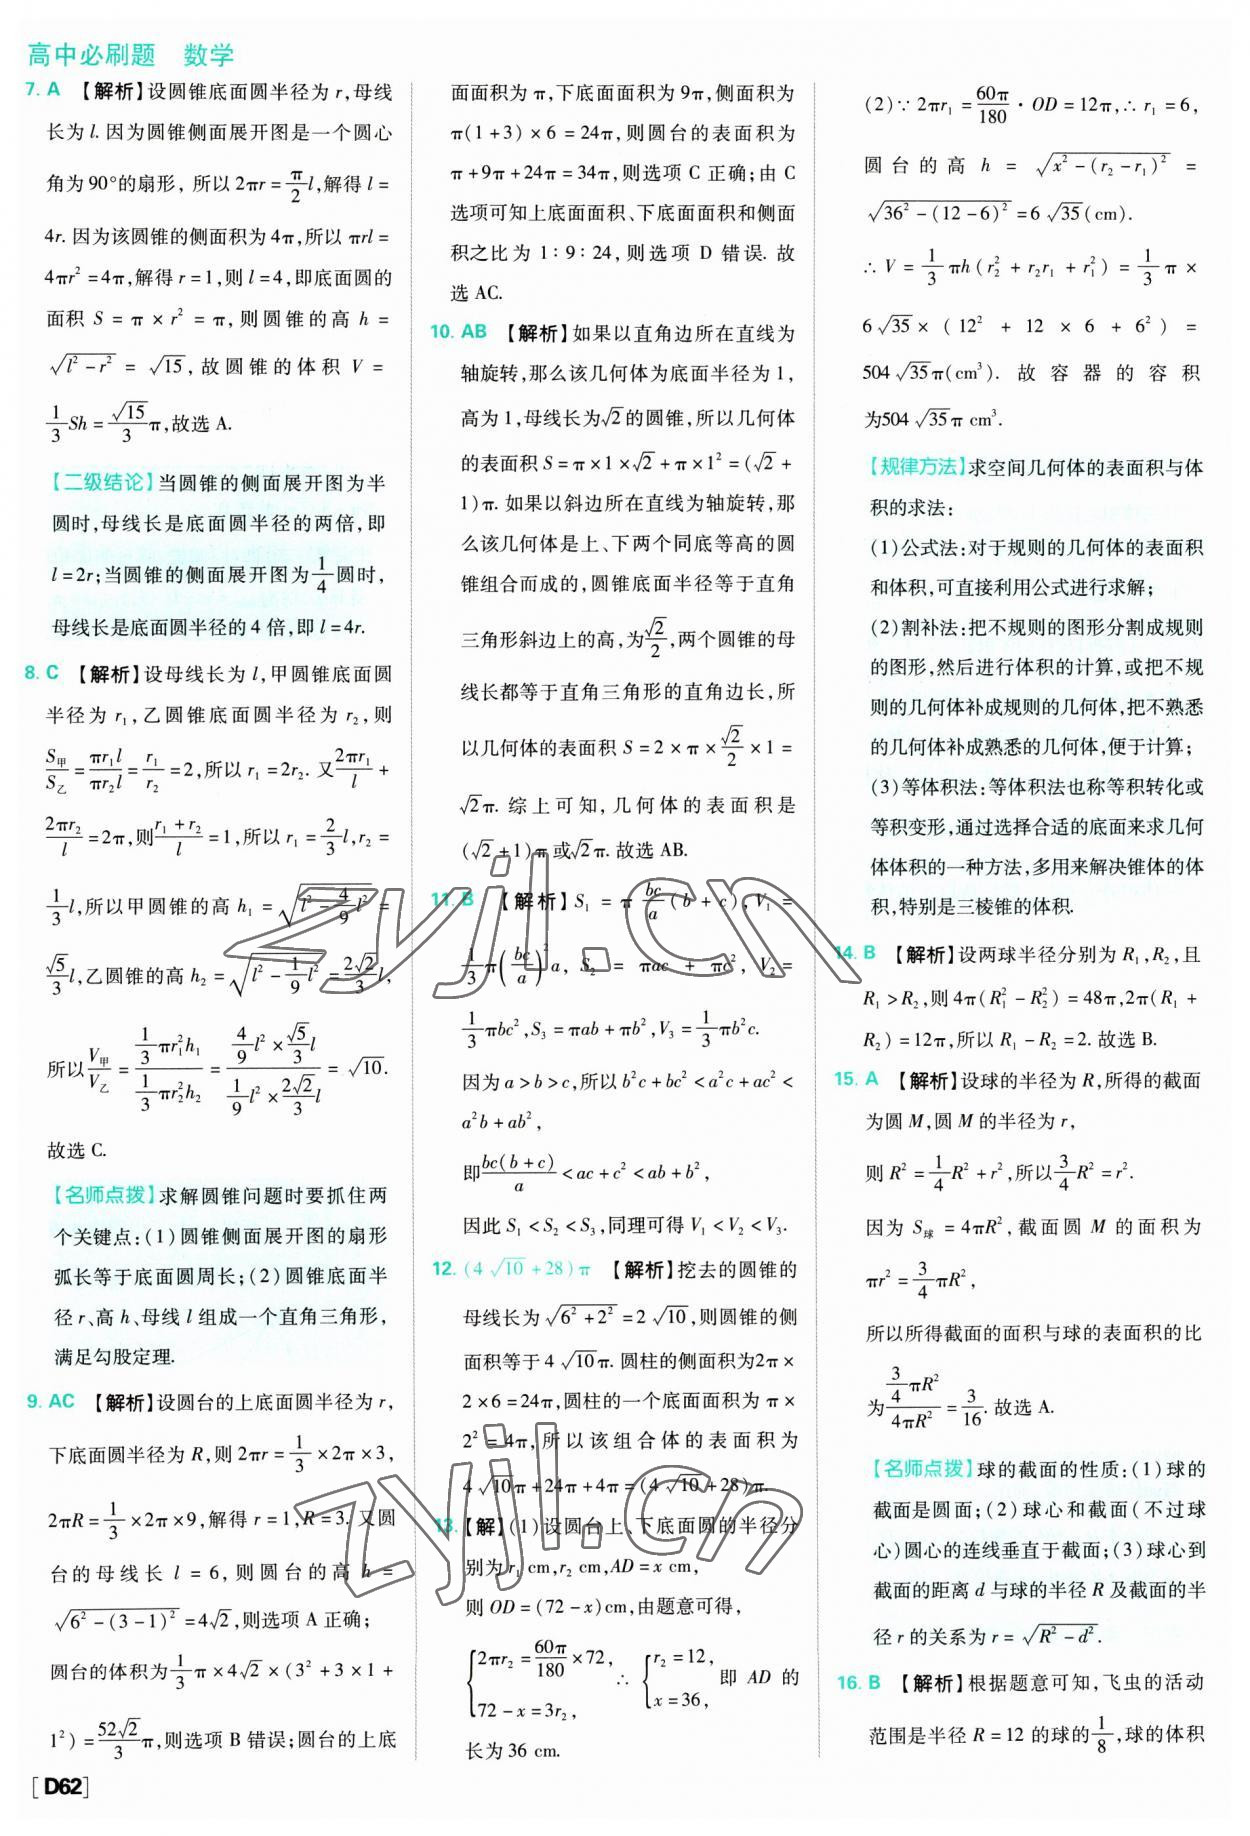 高中必刷题 数学
7. A 【解析】设圆锥底面圆半径为 r,母线
长为 l. 因为圆锥侧面展开图是一个圆心
角为 90°的扇形, 所以 2πr = π/2 l,解得 l =
4r. 因为该圆锥的侧面积为 4π,所以 πrl =
4πr² = 4π,解得 r = 1,则 l = 4,即底面圆的
面积 S = π × r² = π,则圆锥的高 h =
√(l² - r²) = √15, 故圆锥的体积 V =
1/3 Sh = √15/3 π,故选 A.
【二级结论】当圆锥的侧面展开图为半
圆时,母线长是底面圆半径的两倍,即
l = 2r;当圆锥的侧面展开图为 1/4 圆时,
母线长是底面圆半径的 4 倍,即 l = 4r.
8. C 【解析】设母线长为 l,甲圆锥底面圆
半径为 r₁,乙圆锥底面圆半径为 r₂,则
S甲/S乙 = πr₁l/πr₂l = r₁/r₂ = 2,所以 r₁ = 2r₂. 又 2πr₁/l +
2πr₂/l = 2π,则 (r₁ + r₂)/l = 1,所以 r₁ = 2/3 l,r₂ =
1/3 l,所以甲圆锥的高 h₁ = √(l² - 4/9 l²) =
√5/3 l,乙圆锥的高 h₂ = √(l² - 1/9 l²) = 2√2/3 l,
所以 V甲/V乙 = (1/3 πr₁²h₁)/(1/3 πr₂²h₂) = (4/9 l² × √5/3 l)/(1/9 l² × 2√2/3 l) = √10.
故选 C.
【名师点拨】求解圆锥问题时要抓住两
个关键点:(1)圆锥侧面展开图的扇形
弧长等于底面圆周长;(2)圆锥底面半
径 r、高 h、母线 l 组成一个直角三角形,
满足勾股定理.
9. AC 【解析】设圆台的上底面圆半径为 r,
下底面圆半径为 R,则 2πr = 1/3 × 2π × 3,
2πR = 1/3 × 2π × 9,解得 r = 1,R = 3. 又圆
台的母线长 l = 6,则圆台的高 h =
√(6² - (3 - 1)²) = 4√2,则选项 A 正确;
圆台的体积为 1/3 π × 4√2 × (3² + 3 × 1 +
1²) = 52√2/3 π,则选项 B 错误;圆台的上底
[D62]
面面积为 π,下底面面积为 9π,侧面积为
π(1 + 3) × 6 = 24π,则圆台的表面积为
π + 9π + 24π = 34π,则选项 C 正确;由 C
选项可知上底面面积、下底面面积和侧面
积之比为 1∶9∶24,则选项 D 错误. 故
选 AC.
10. AB 【解析】如果以直角边所在直线为
轴旋转,那么该几何体为底面半径为 1,
高为 1,母线长为√2的圆锥,所以几何体
的表面积 S = π × 1 × √2 + π × 1² = (√2 +
1)π. 如果以斜边所在直线为轴旋转,那
么该几何体是上、下两个同底等高的圆
锥组合而成的,圆锥底面半径等于直角
三角形斜边上的高,为 √2/2,两个圆锥的母
线长都等于直角三角形的直角边长,所
以几何体的表面积 S = 2 × π × √2/2 × 1 =
√2π. 综上可知,几何体的表面积是
(√2 + 1)π 或√2π. 故选 AB.
11. B 【解析】S₁ = π bc/a (b + c), V₁ =
1/3 π(bc/a)² a, S₂ = πac + πc², V₂ =
1/3 πbc²,S₃ = πab + πb²,V₃ = 1/3 πb²c.
因为 a > b > c,所以 b²c + bc² < a²c + ac² <
a²b + ab²,
即 bc(b + c)/a < ac + c² < ab + b²,
因此 S₁ < S₂ < S₃,同理可得 V₁ < V₂ < V₃.
12. (4√10 + 28)π 【解析】挖去的圆锥的
母线长为 √(6² + 2²) = 2√10,则圆锥的侧
面积等于 4√10π. 圆柱的侧面积为2π ×
2 × 6 = 24π,圆柱的一个底面面积为 π ×
2² = 4π,所以该组合体的表面积为
4√10π + 24π + 4π = (4√10 + 28)π.
13. 【解】(1)设圆台上、下底面圆的半径分
别为 r₁ cm,r₂ cm,AD = x cm,
则 OD = (72 - x)cm,由题意可得,
{2πr₂ = 60π/180 × 72, 72 - x = 3r₂, ∴ {r₂ = 12, x = 36, 即 AD 的
长为 36 cm.
(2)∵ 2πr₁ = 60π/180 · OD = 12π,∴ r₁ = 6,
圆台的高 h = √(x² - (r₂ - r₁)²) =
√(36² - (12 - 6)²) = 6√35(cm).
∴ V = 1/3 πh(r₂² + r₂r₁ + r₁²) = 1/3 π ×
6√35 × (12² + 12 × 6 + 6²) =
504√35π(cm³). 故容器的容积
为504√35π cm³.
【规律方法】求空间几何体的表面积与体
积的求法:
(1)公式法:对于规则的几何体的表面积
和体积,可直接利用公式进行求解;
(2)割补法:把不规则的图形分割成规则
的图形,然后进行体积的计算,或把不规
则的几何体补成规则的几何体,把不熟悉
的几何体补成熟悉的几何体,便于计算;
(3)等体积法:等体积法也称等积转化或
等积变形,通过选择合适的底面来求几何
体体积的一种方法,多用来解决锥体的体
积,特别是三棱锥的体积.
14. B 【解析】设两球半径分别为 R₁,R₂,且
R₁ > R₂,则 4π(R₁² - R₂²) = 48π,2π(R₁ +
R₂) = 12π,所以 R₁ - R₂ = 2. 故选 B.
15. A 【解析】设球的半径为 R,所得的截面
为圆 M,圆 M 的半径为 r,
则 R² = 1/4 R² + r²,所以 3/4 R² = r².
因为 S球 = 4πR²,截面圆 M 的面积为
πr² = 3/4 πR²,
所以所得截面的面积与球的表面积的比
为 (3/4 πR²)/(4πR²) = 3/16. 故选 A.
【名师点拨】球的截面的性质:(1)球的
截面是圆面;(2)球心和截面(不过球
心)圆心的连线垂直于截面;(3)球心到
截面的距离 d 与球的半径 R 及截面的半
径 r 的关系为 r = √(R² - d²).
16. B 【解析】根据题意可知,飞虫的活动
范围是半径 R = 12 的球的 1/8,球的体积
zyjl.cn
zyjl.cn